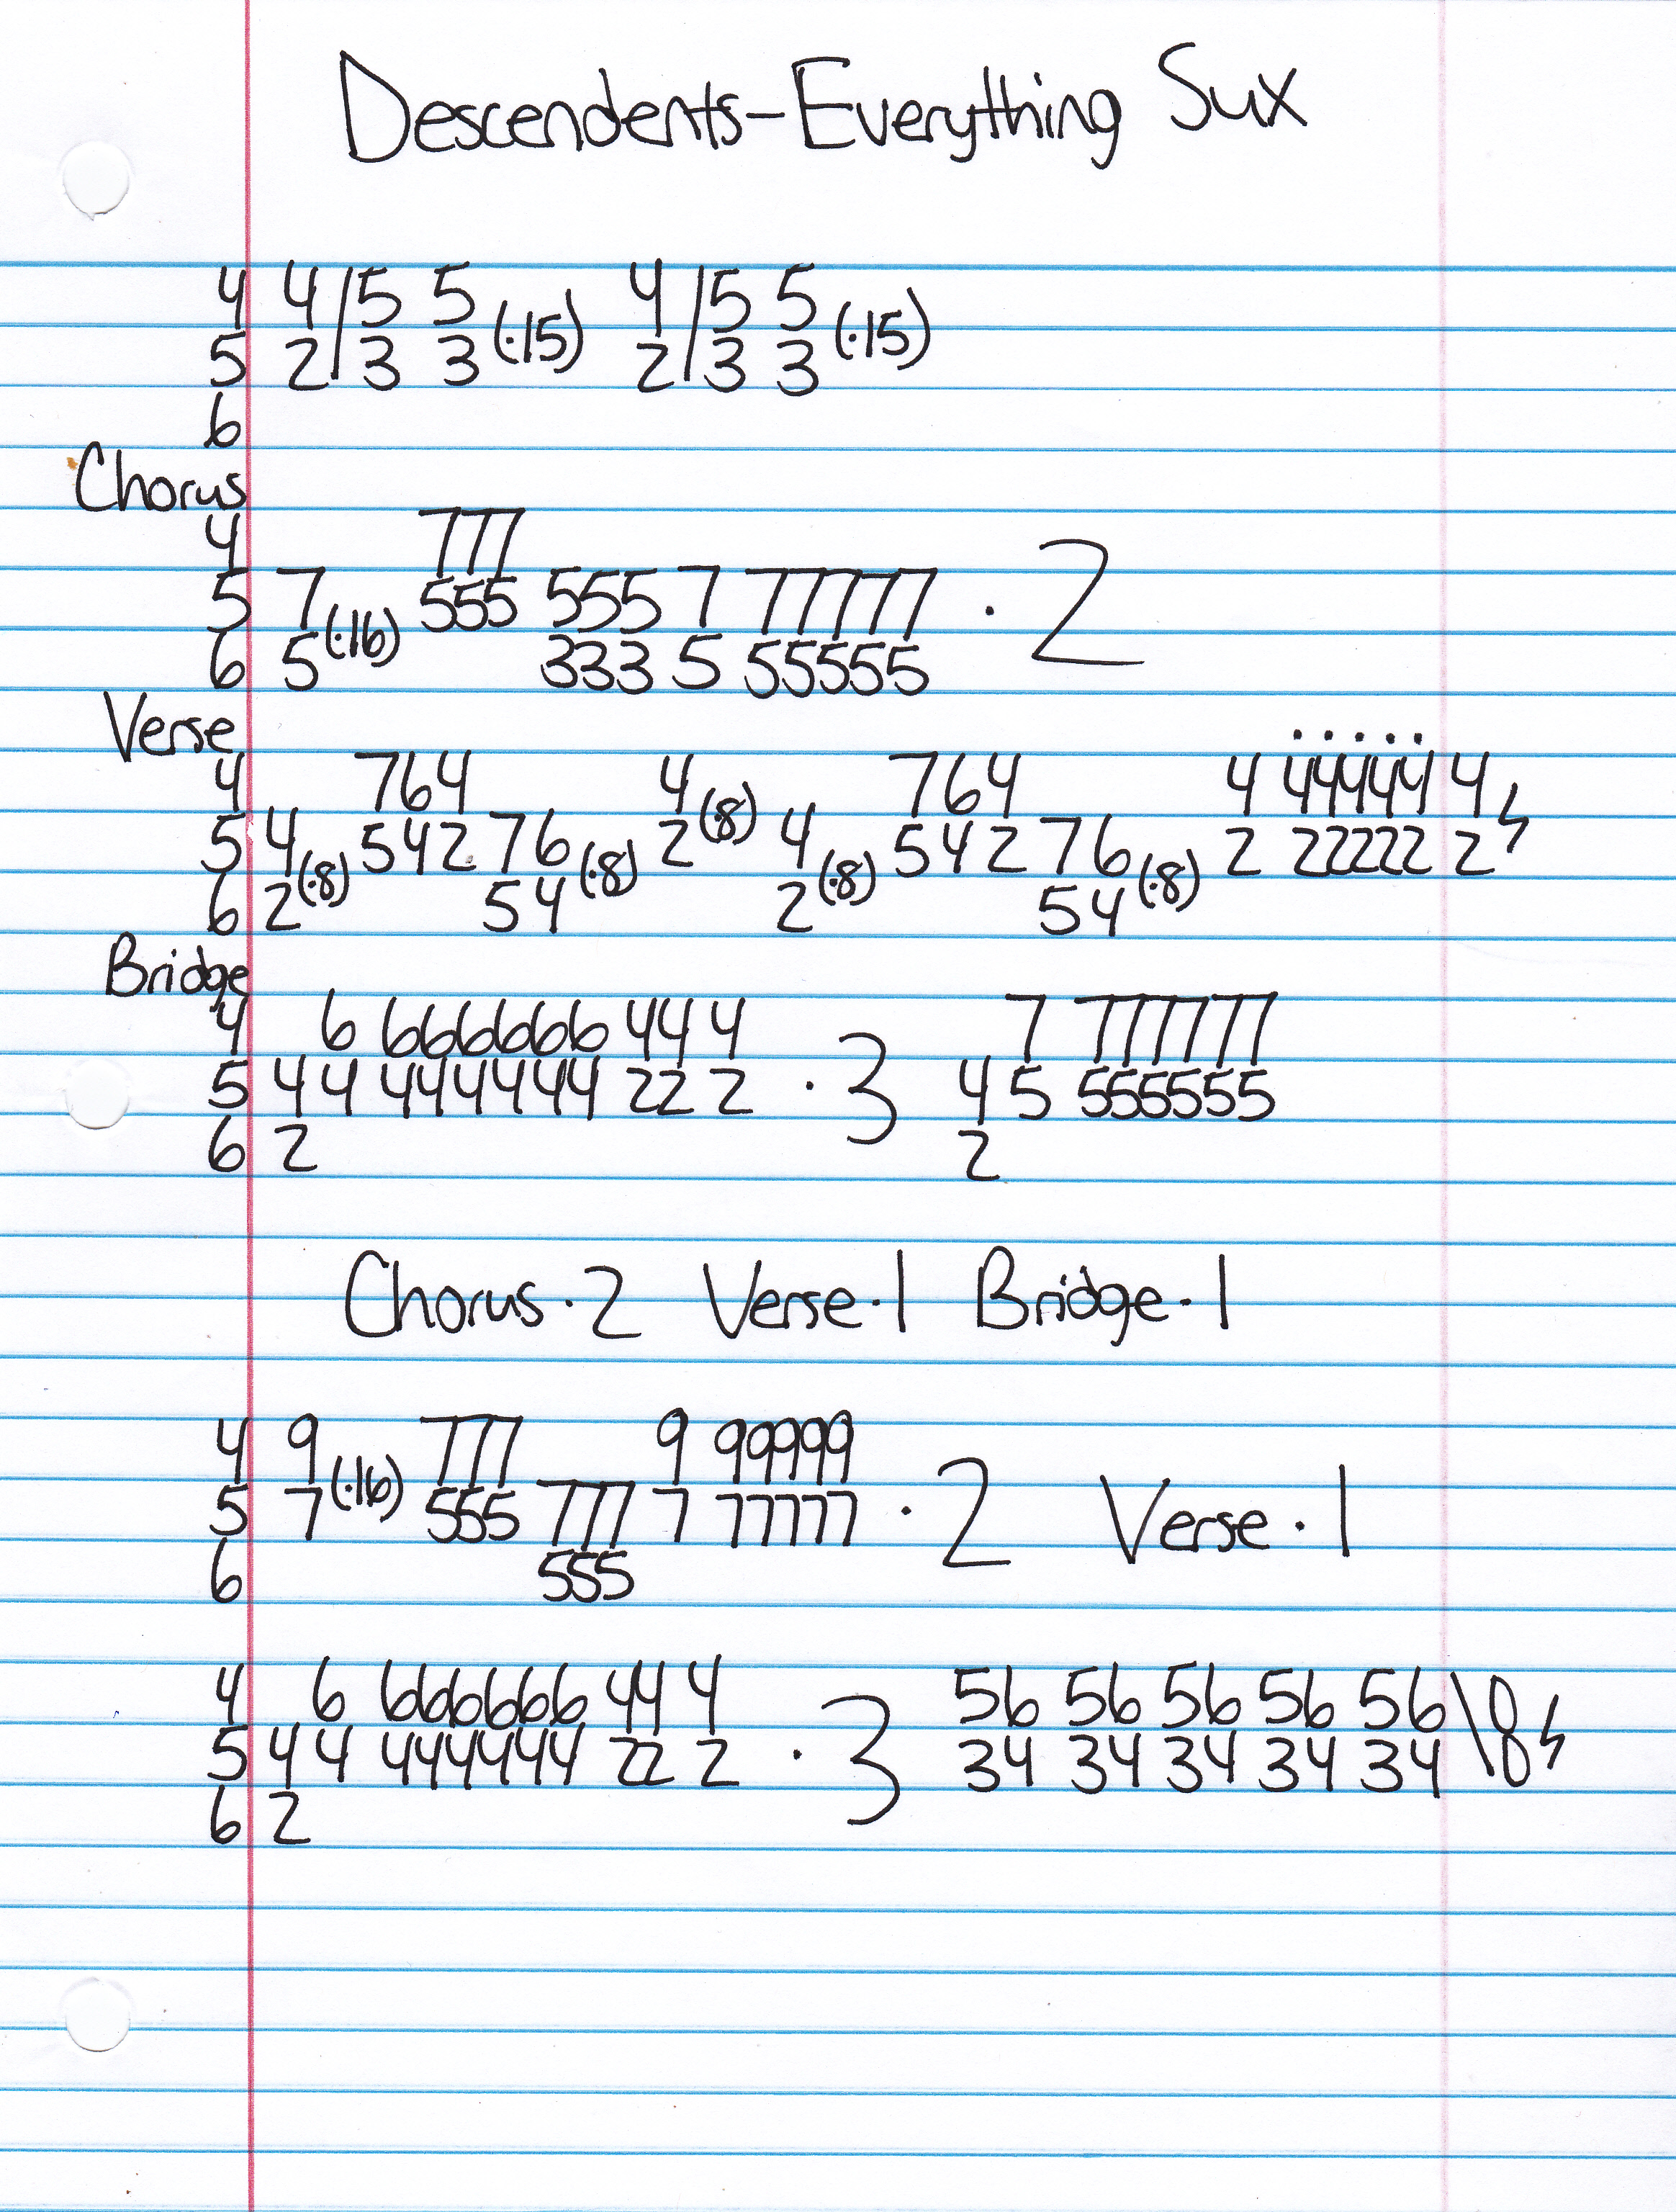 Descendents-Everything Sux
4 4/5 5 4/5 5
5 2/3 3 (·15) 2/3 3 (·15)
6
Chorus
4 777
5 7 (·16) 555 555 7 77777 · 2
6 5 333 5 55555
Verse
4 764 4 (·8) 764 4 44444 4
5 4 (·8) 542 76 (·8) 2 4 (·8) 542 76 (·8) 2 22222 2
6 2 54 2 54
Bridge
4 6 666666 44 4 7 777777
5 4 4 444444 22 2 · 3 4 5 555555
6 2 2
Chorus·2 Verse·1 Bridge·1
4 9 (·16) 777 9 99999
5 7 555 777 7 77777 · 2 Verse·1
6 555
4 6 666666 44 4 56 56 56 56 56 \0
5 4 4 444444 22 2 · 3 34 34 34 34 34 \0
6 2